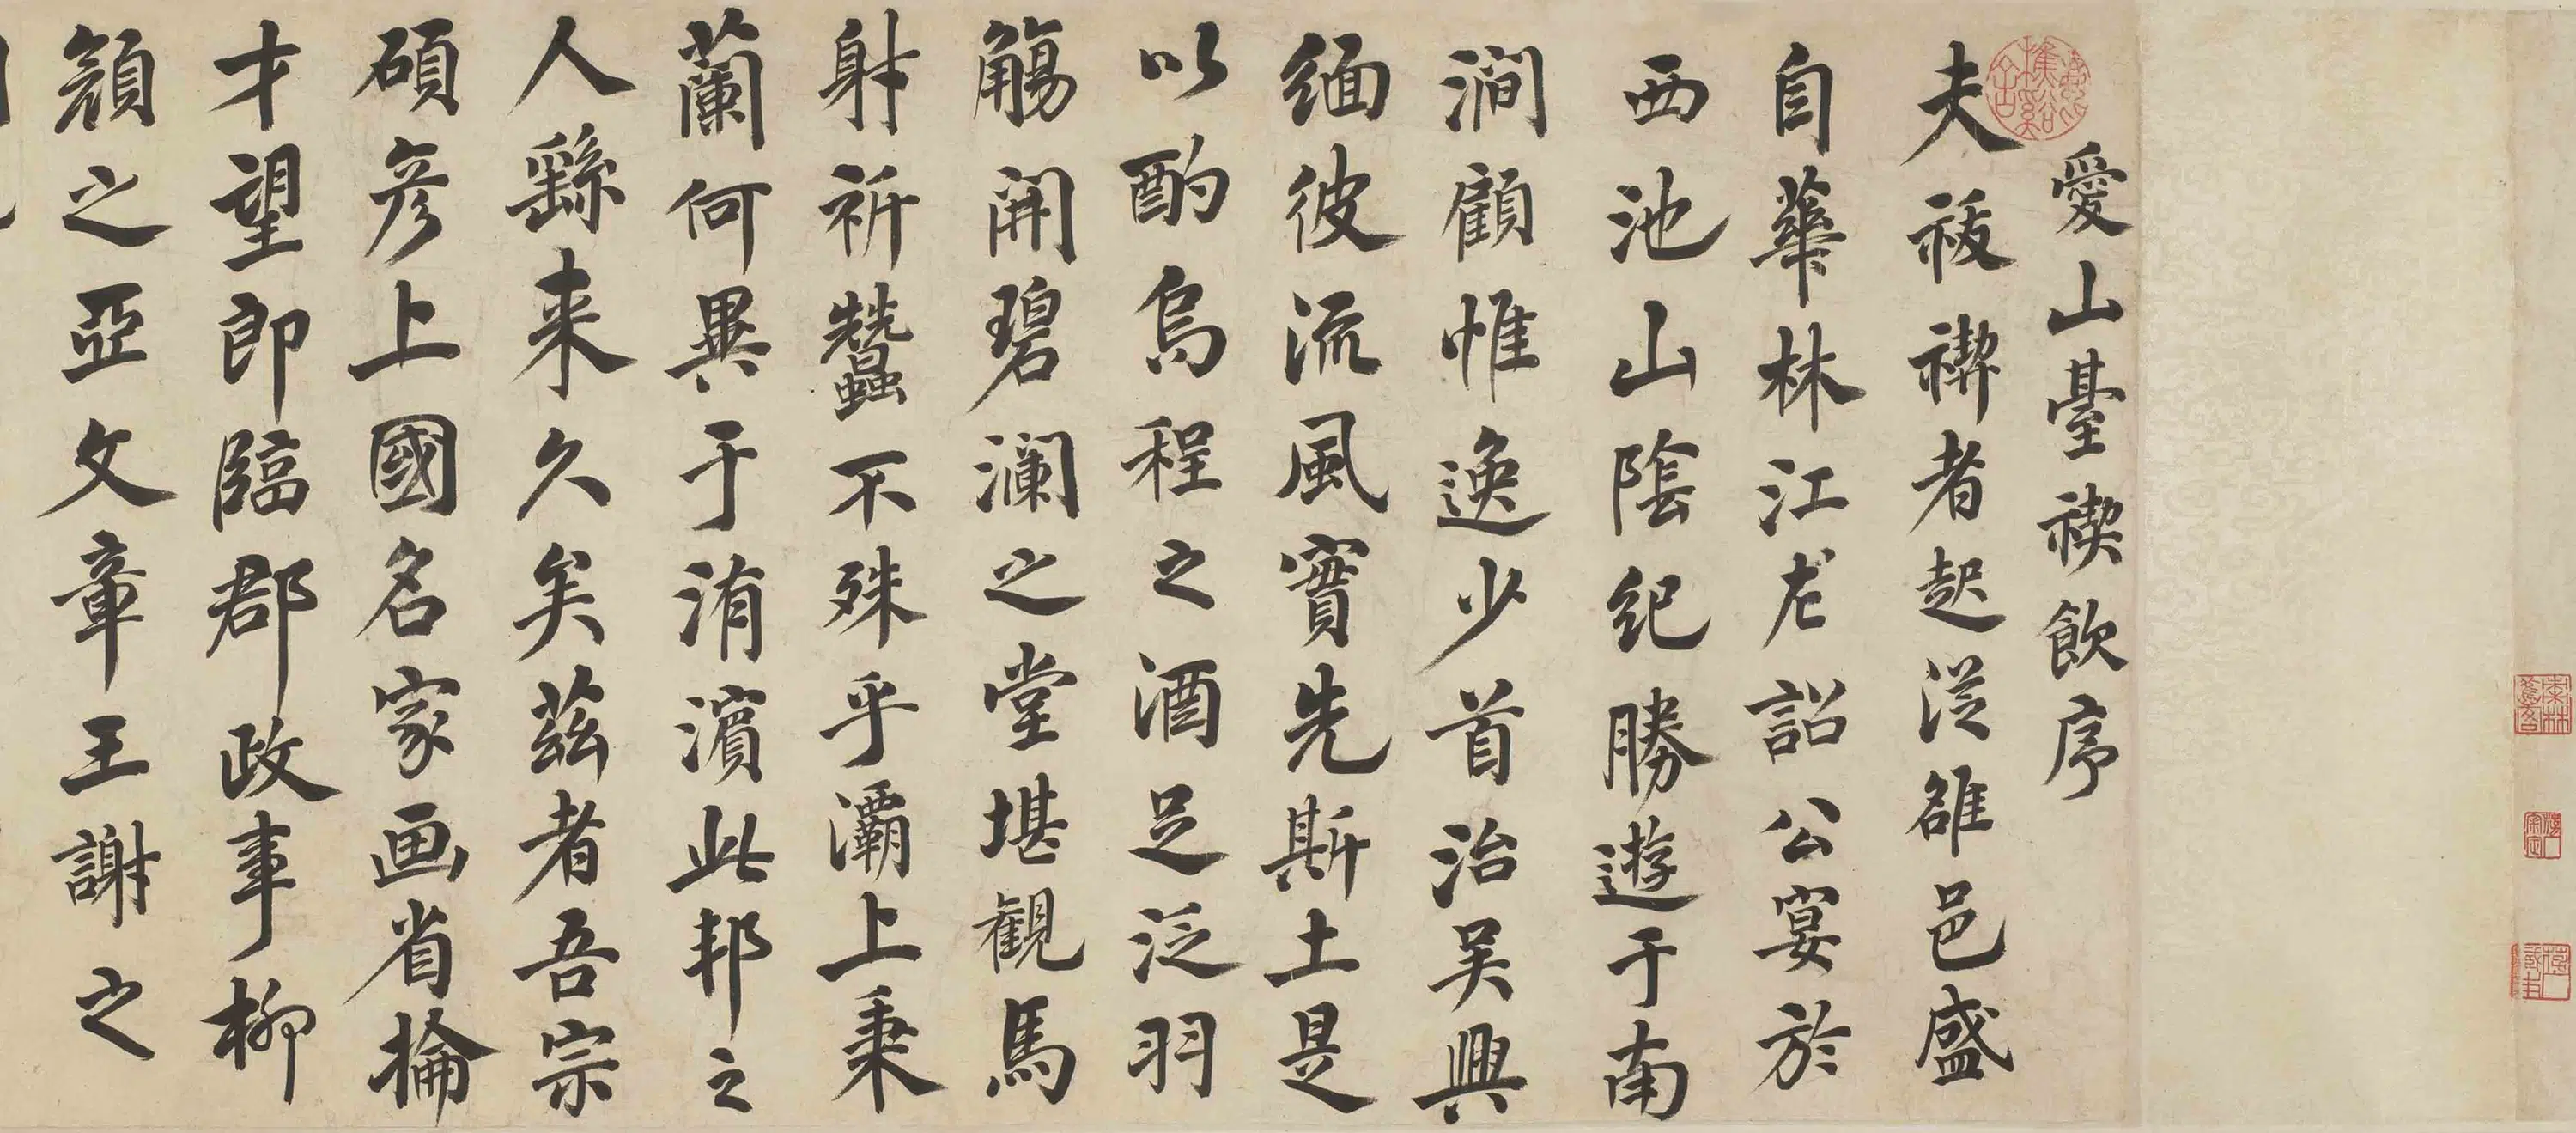 愛山臺禊飲序
夫祓禊者起從雒邑盛
自華林江左詔公宴於
西池山陰紀勝遊于南
澗顧惟逸少首治吴興
緬彼流風實先斯土是
以酌烏程之酒足泛羽
觴開碧瀾之堂堪観馬
射祈蠶不殊乎灞上秉
蘭何異于洧濱此邦之
人繇来久矣茲者吾宗
碩彦上國名家画省掄
才望郎臨郡政事柳
顏之亞文章王謝之